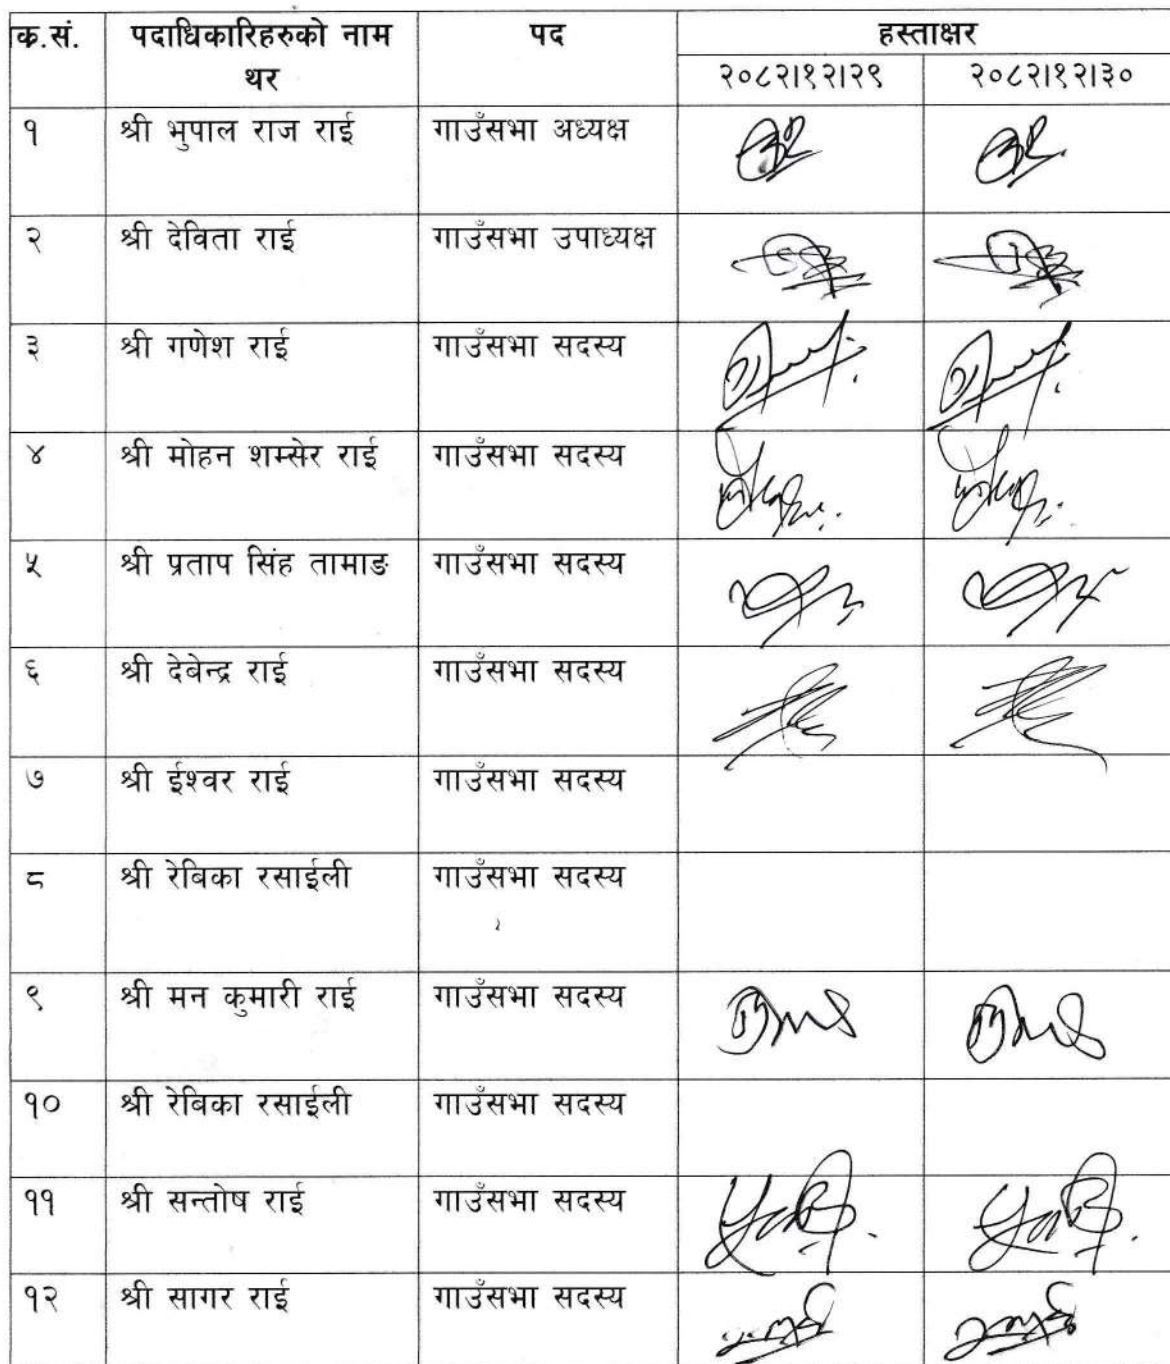 क.सं. पदाधिकारिहरुको नाम पद हस्ताक्षर
थर २०८२।१२।२९ २०८२।१२।३०
१ श्री भुपाल राज राई गाउँसभा अध्यक्ष
२ श्री देविता राई गाउँसभा उपाध्यक्ष
३ श्री गणेश राई गाउँसभा सदस्य
४ श्री मोहन शम्सेर राई गाउँसभा सदस्य
५ श्री प्रताप सिंह तामाङ गाउँसभा सदस्य
६ श्री देबेन्द्र राई गाउँसभा सदस्य
७ श्री ईश्वर राई गाउँसभा सदस्य
८ श्री रेबिका रसाईली गाउँसभा सदस्य
९ श्री मन कुमारी राई गाउँसभा सदस्य
१० श्री रेबिका रसाईली गाउँसभा सदस्य
११ श्री सन्तोष राई गाउँसभा सदस्य
१२ श्री सागर राई गाउँसभा सदस्य